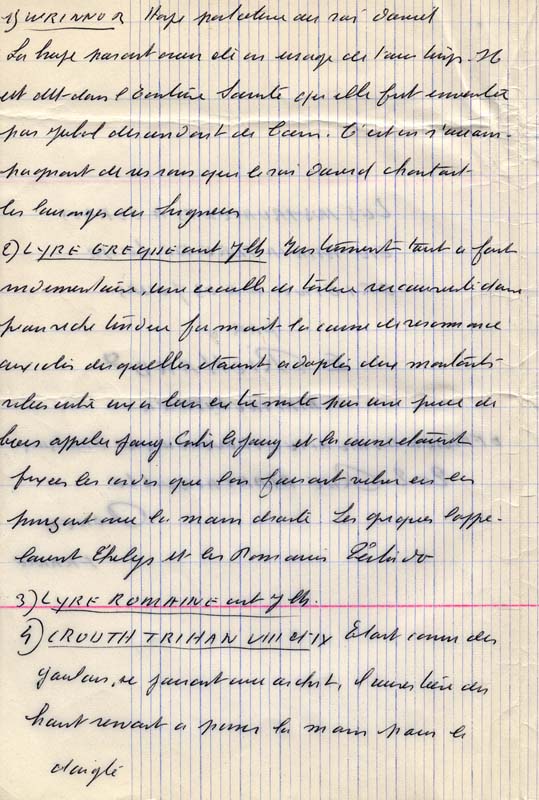 1) WRINNOR Harpe portative du roi David
La harpe parait avoir été en usage de tous temps. Il
est dit dans l'Ecriture Sainte qu'elle fut inventée
par Jubal descendant de Cain. C'est en s'accom-
pagnant de ses sons que le roi David chantait
les louanges du Seigneur
2) LYRE GREQUE ant J Ch Instrument tout a fait
rudimentaire, une écaille de tortue recouverte d'une
peau seche tendue formait la caisse de resonnance
aux cotés desquelles etaient adaptés deux montants
reliés entre eux a leur extremité par une piece de
bois appelée joug. Entre le joug et la caisse etaient
fixées les cordes que l'on faisait vibrer en les
pinçant avec la main droite Les grecques l'appe-
laient Khelys et les Romains Testudo
3) LYRE ROMAINE ant J Ch.
4) CROUTH TRIHAN VIII et IX Etait connu des
gaulois, se jouait avec archet, l'ouverture du
haut servait a passer la main pour le
doigté